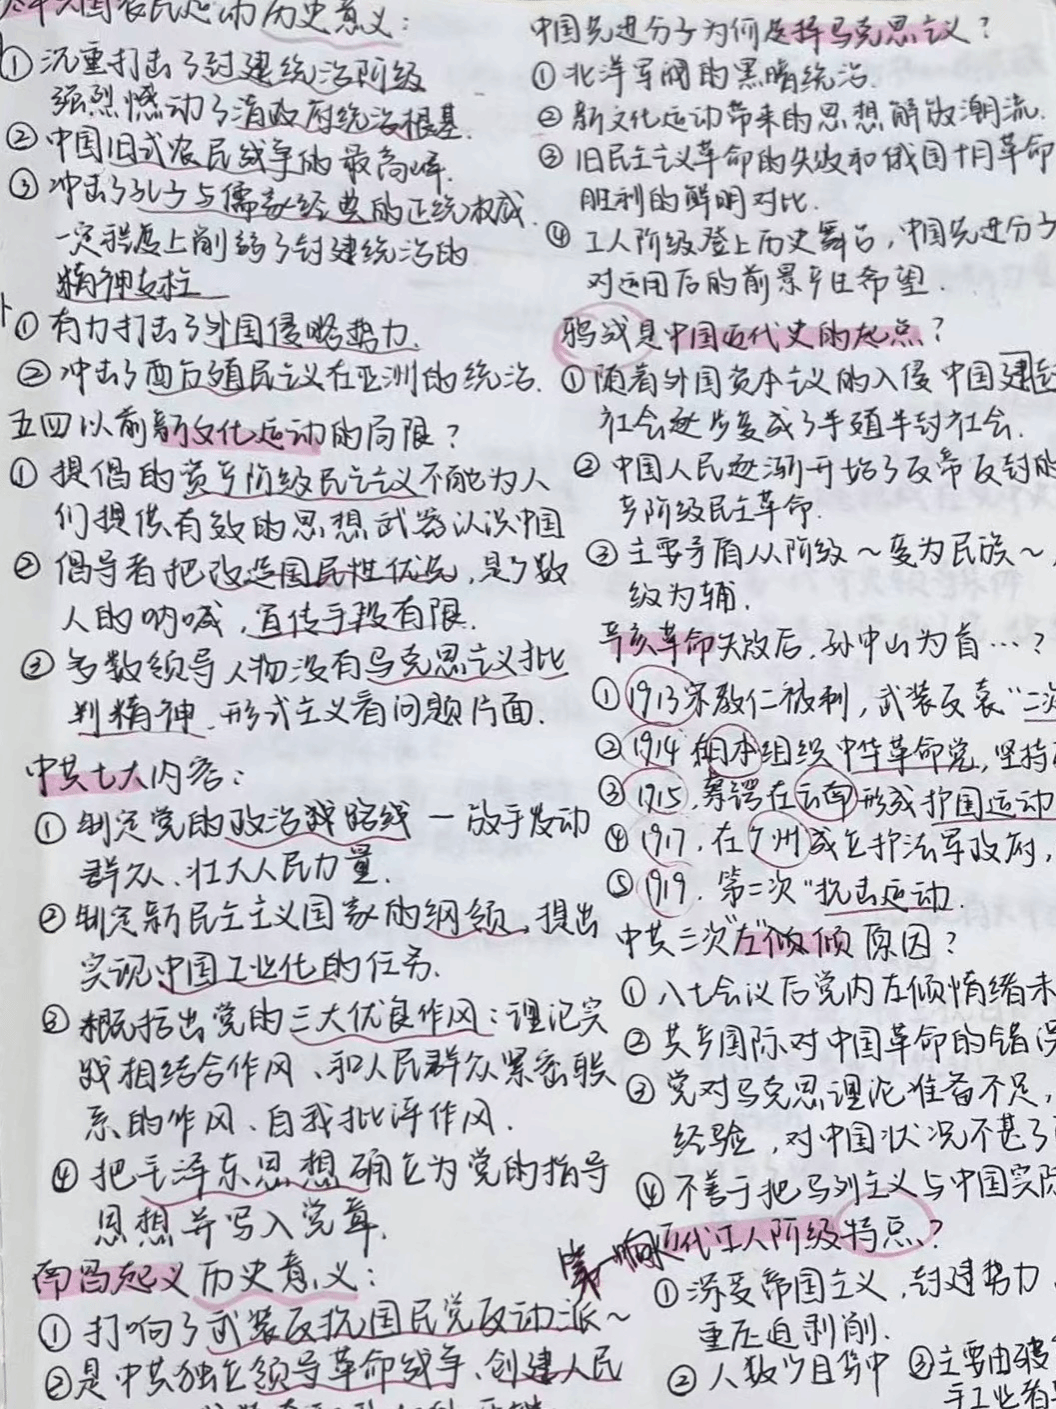 太平天国农民运动历史意义：
① 沉重打击了封建统治阶级
强烈憾动了清政府统治根基.
② 中国旧式农民战争的最高峰.
③ 冲击了孔子与儒家经典的正统权威
一定程度上削弱了封建统治的
精神支柱
① 有力打击了外国侵略势力.
② 冲击了西方殖民主义在亚洲的统治.
五四以前新文化运动的局限？
① 提倡的资产阶级民主主义不能为人
们提供有效的思想武器认识中国
② 倡导者把改造国民性优先，是少数
人的呐喊，宣传手段有限.
③ 多数领导人物没有马克思主义批
判精神、形式主义看问题片面.
中共七大内容：
① 制定党的政治战路线 — 放手发动
群众、壮大人民力量.
② 制定新民主主义国家的纲领、提出
实现中国工业化的任务.
③ 概括出党的三大优良作风：理论实
践相结合作风、和人民群众紧密联
系的作风、自我批评作风.
④ 把毛泽东思想确立为党的指导
思想并写入党章.
南昌起义历史意义：
① 打响了武装反抗国民党反动派～
② 是中共独立领导革命战争、创建人民
中国先进分子为何选择马克思主义？
① 北洋军阀的黑暗统治.
② 新文化运动带来的思想解放潮流.
③ 旧民主主义革命的失败和俄国十月革命
胜利的鲜明对比.
④ 工人阶级登上历史舞台，中国先进分子
对运用后的前景产生希望.
鸦战是中国近代史的起点？
① 随着外国资本主义的入侵 中国
社会逐步变成了半殖半封社会.
② 中国人民逐渐开始了反帝反封的
产阶级民主革命.
③ 主要矛盾从阶级～变为民族～，
级为辅.
辛亥革命失败后，孙中山为首…？
① 1913 宋教仁被刺，武装反袁“二次
② 1914 组织中华革命党，坚持
③ 1915，蔡锷在云南形成护国运动
④ 1917，在广州成立护法军政府，
⑤ 1919. 第二次“
中共三次“左”倾 原因？
① 八七会议后党内左倾情绪未
② 共产国际对中国革命的错误
③ 党对马克思理论准备不足，
经验，对中国状况不甚了
④ 不善于把马列主义与中国实际
近代工人阶级特点？
① 深受帝国主义，封建势力，
重压迫剥削.
② 人数少且集中 ③ 主要由破
手工业者